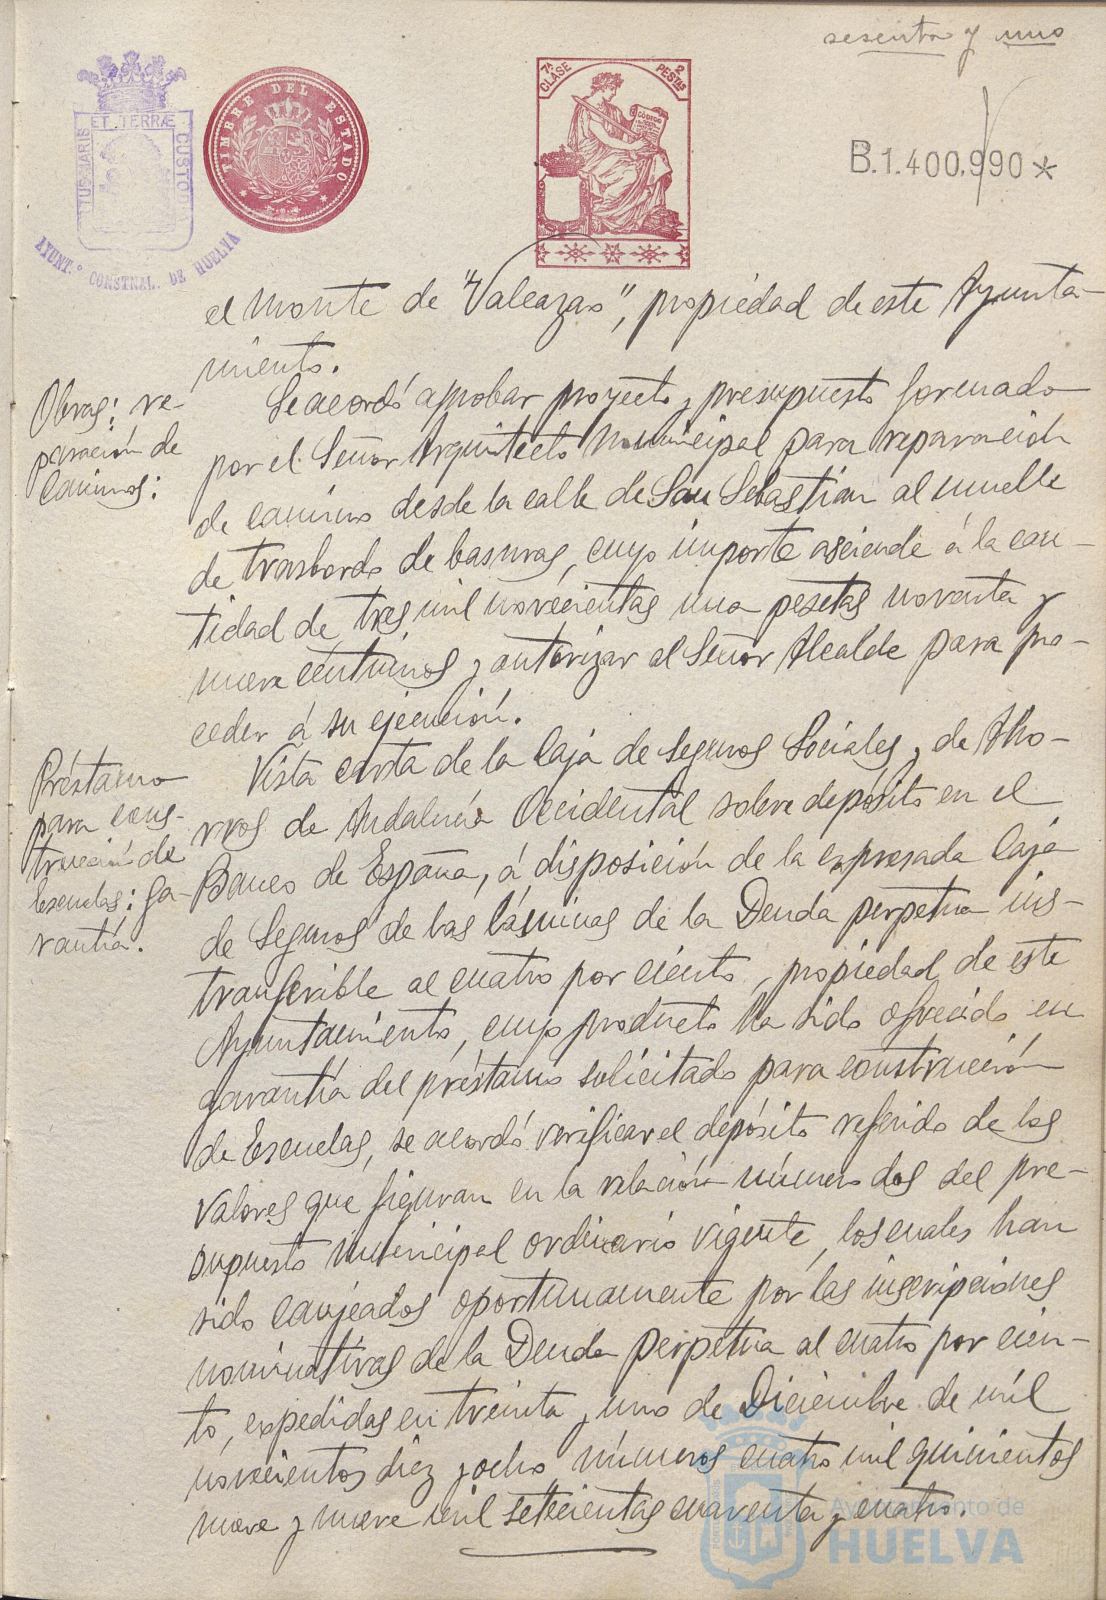 sesenta y uno
ET TERRÆ
CUSTOD
AYUNT.º CONSTNAL. DE HUELVA
TIMBRE DEL ESTADO
7ª CLASE
2 PESTAS
CÓDIGO
B.1.400.990 *
el monte de "Valcazao", propiedad de este Ayunta-
miento.
Obras: re-
paración de
caminos:
Se acordó aprobar proyecto y presupuesto formado
por el Señor Arquitecto Municipal para reparación
de camino desde la calle de San Sebastián al muelle
de trasbordo de basuras, cuyo importe asciende á la can-
tidad de tres mil novecientas una pesetas noventa y
nueve centimos y autorizar al Señor Alcalde para pro-
ceder á su ejecución.
Préstamo
para cons-
trucción de
Escuelas: ga-
rantía.
Vista carta de la Caja de Seguros Sociales y de Aho-
rros de Andalucía Occidental sobre depósito en el
Banco de España, á disposición de la expresada Caja
de Seguros de las láminas de la Deuda perpetua ins-
transferible al cuatro por ciento, propiedad de este
Ayuntamiento, cuyo producto ha sido ofrecido en
garantía del préstamo solicitado para construcción
de Escuelas, se acordó verificar el depósito referido de los
valores que figuran en la relación número dos del pre-
supuesto municipal ordinario vigente, los cuales han
sido canjeados oportunamente por las inscripciones
nominativas de la Deuda perpetua al cuatro por cien-
to, expedidas en treinta y uno de Diciembre de mil
novecientos diez y ocho números cuatro mil quinientos
nueve y nueve mil setecientas cuarenta y cuatro.
Ayuntamiento de
HUELVA